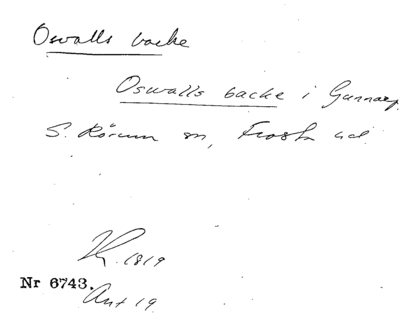 Oswalls backe
Oswalls backe i Gunnarp
S. Rörum sn, Frosta hd
1819
Nr 6743.
Ant 19